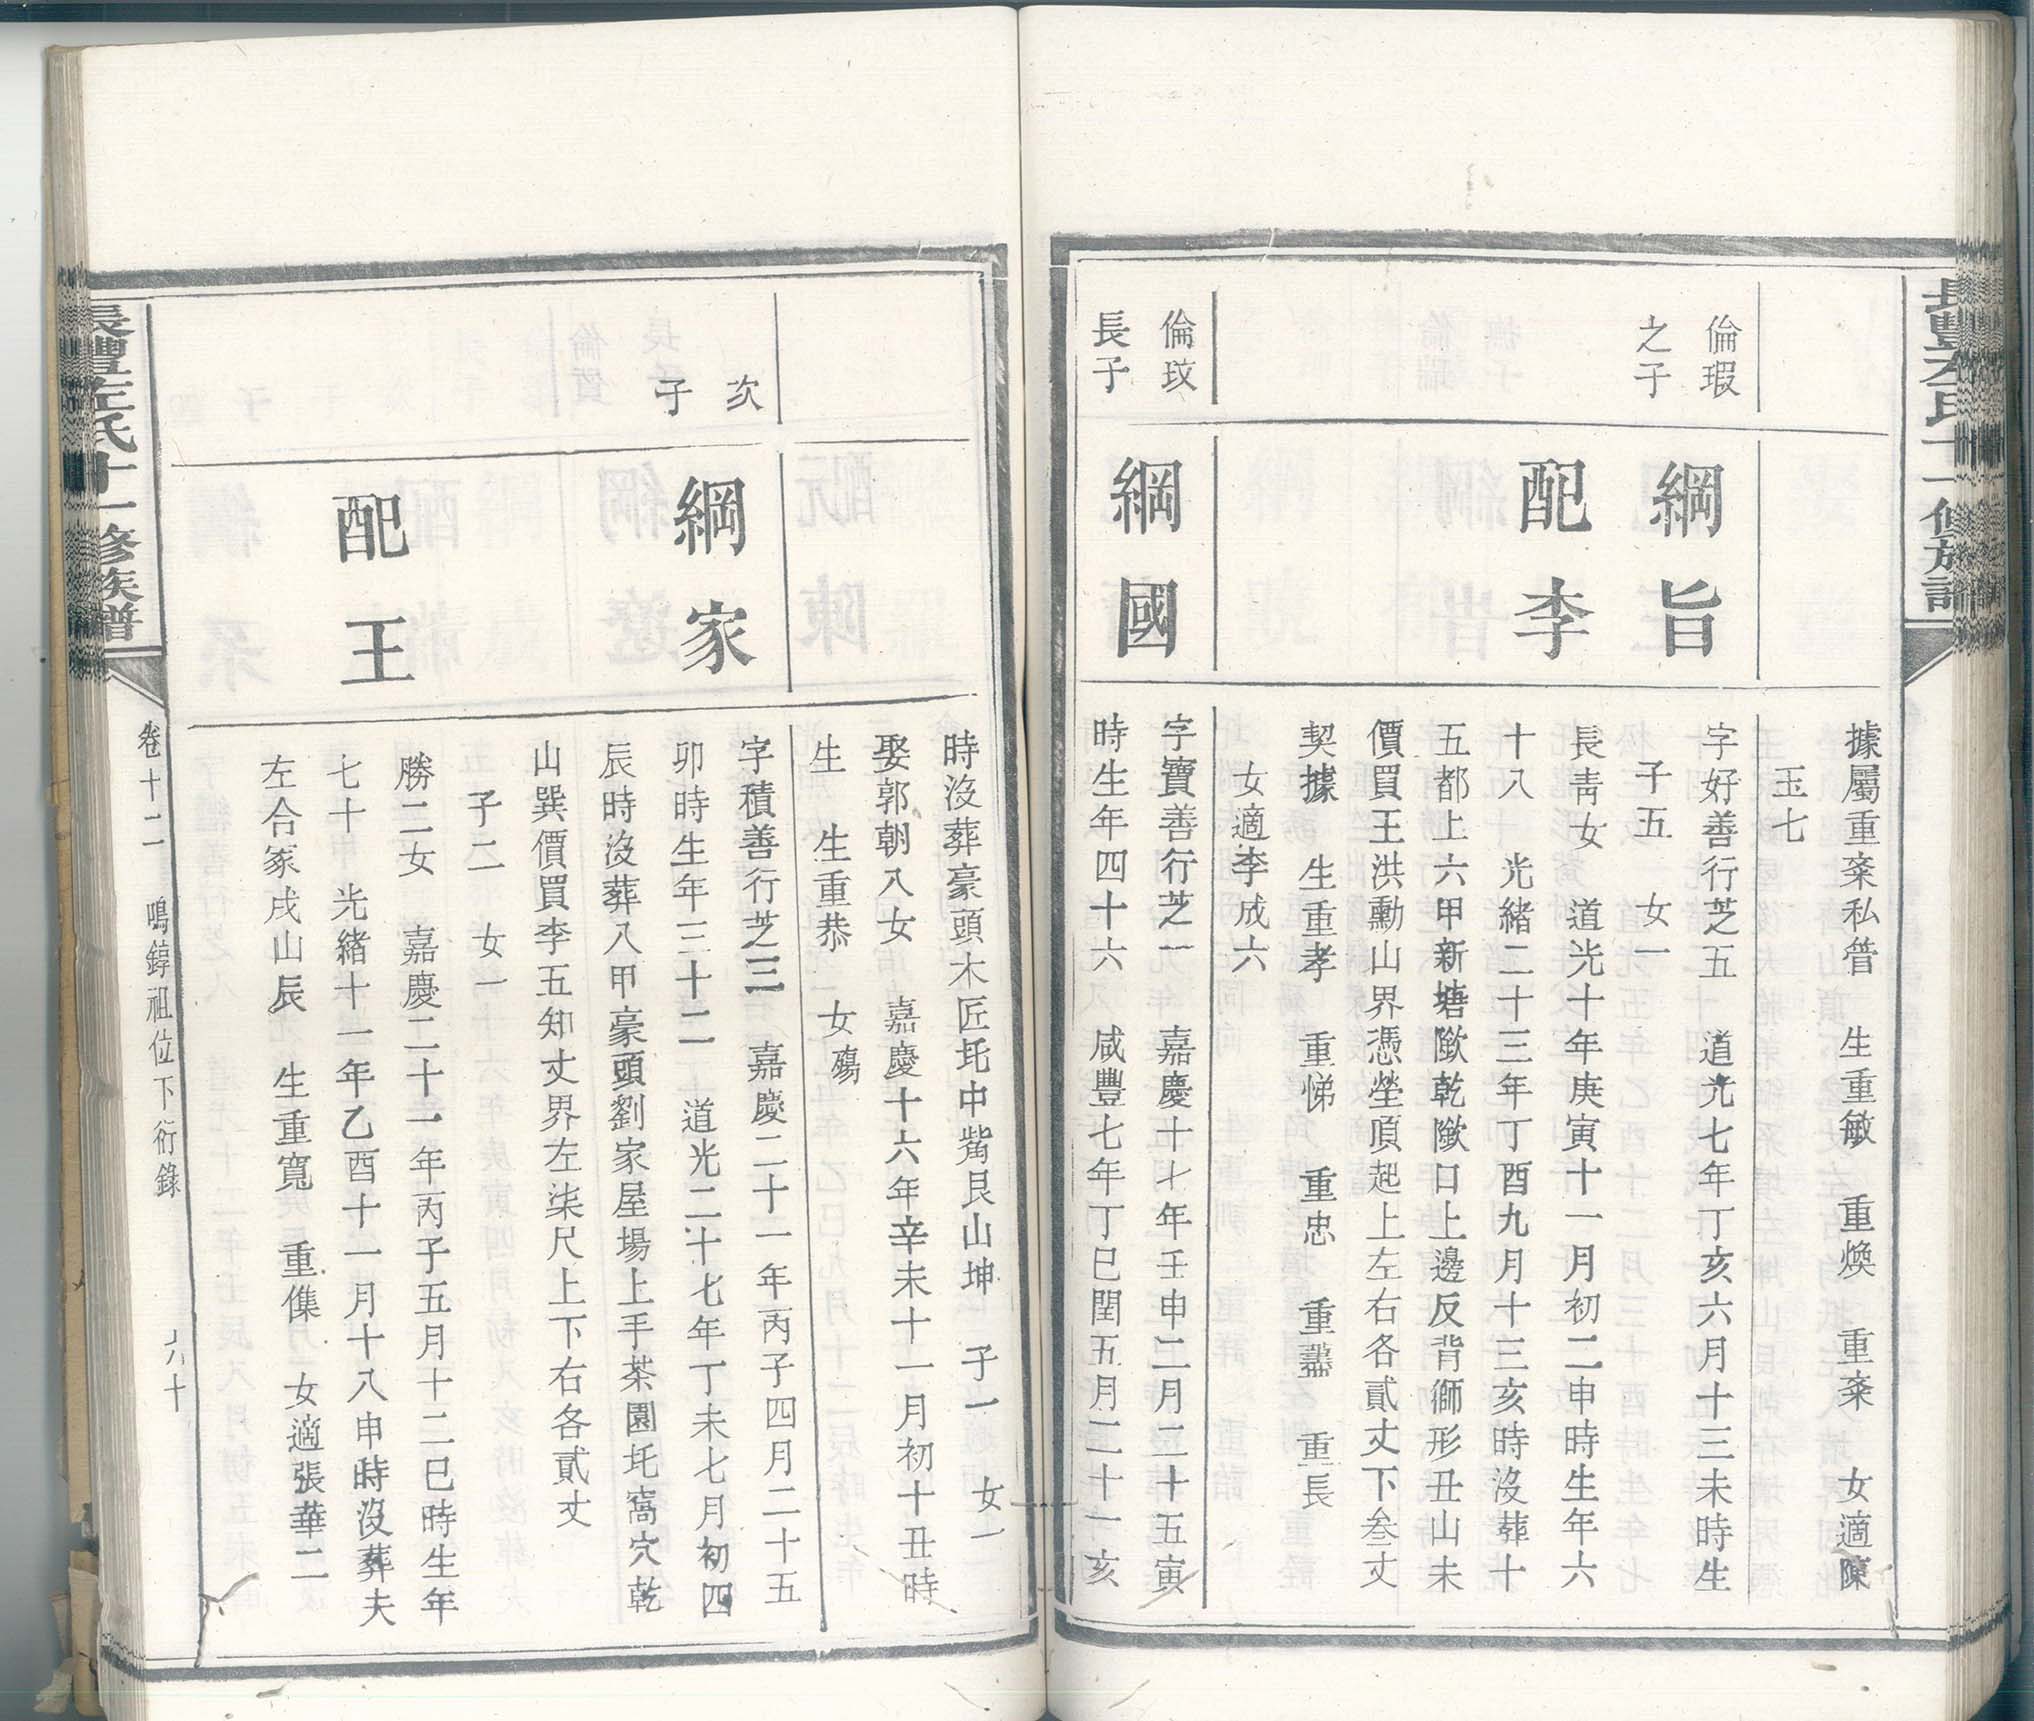 長豐左氏十一修族譜
據屬重桼私管　生重敏　重煥　重桼　女適陳
玉七
倫瑕
之子
綱旨
字好善行芝五　道光七年丁亥六月十三未時生
子五　女一
配李
長靑女　道光十年庚寅十一月初二申時生年六
十八　光緒二十三年丁酉九月十三亥時沒葬十
五都上六甲新塘歟乾歟口上邊反背獅形丑山未
價買王洪勳山界憑塋頂起上左右各貳丈下叁丈
契據　生重孝　重悌　重忠　重　重長
女適李成六
倫玟
長子
綱國
字寶善行芝一　嘉慶十七年壬申二月二十五寅
時生年四十六　咸豐七年丁巳閏五月二十一亥
時沒葬豪頭木匠坨中觜艮山坤　子一　女一
娶郭朝入女　嘉慶十六年辛未十一月初十丑時
生　生重恭　女殤
次
子
綱家
字積善行芝三　嘉慶二十一年丙子四月二十五
卯時生年三十二　道光二十七年丁未七月初四
辰時沒葬八甲豪頭劉家屋場上手茶園坨窩穴乾
山巽價買李五知丈界左柒尺上下右各貳丈
子二　女一
配王
勝二女　嘉慶二十一年丙子五月十二巳時生年
七十　光緒十一年乙酉十一月十八申時沒葬夫
左合冢戌山辰　生重寬　重儶　女適張華二
長豐左氏十一修族譜
卷十二　鳴錞祖位下衍錄　六十